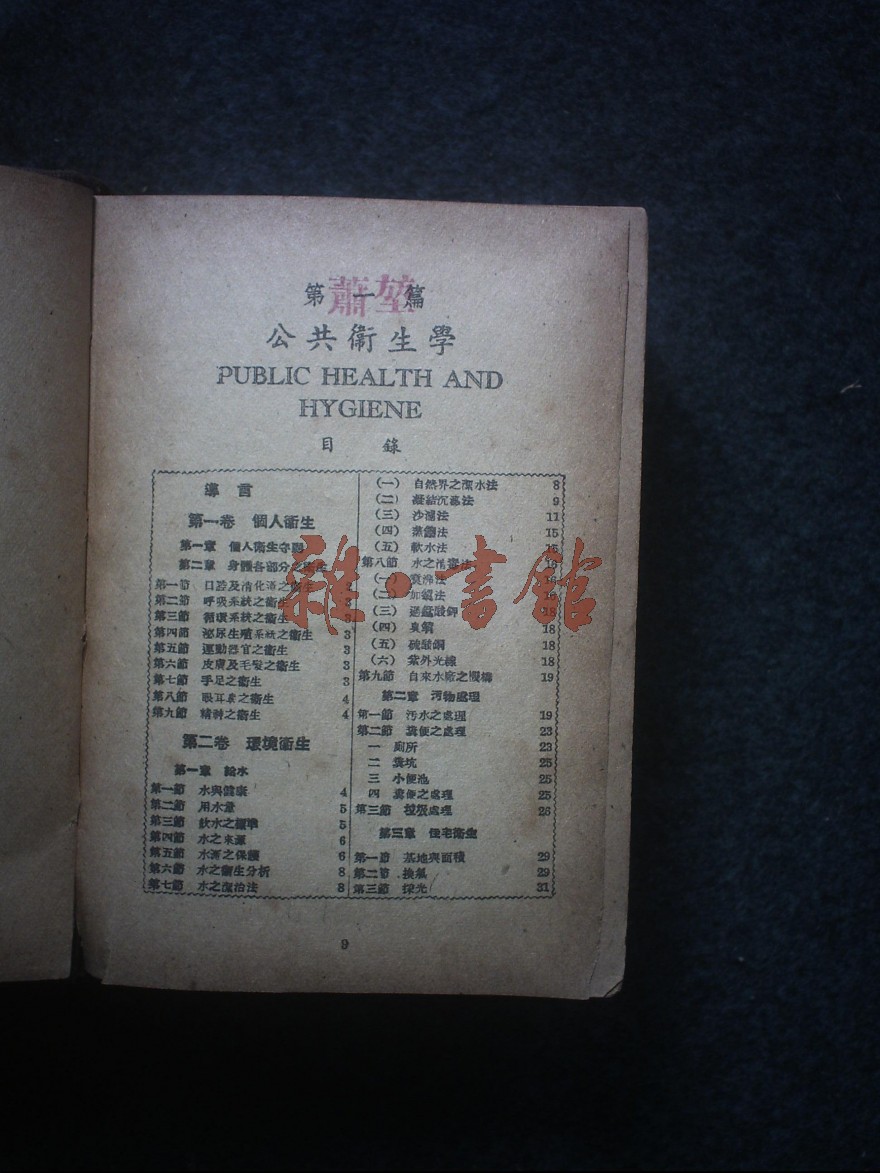 第一篇
蕭堃
公共衞生學
PUBLIC HEALTH AND
HYGIENE
目 錄
導言
第一卷 個人衞生
第一章 個人衞生守則
第二章 身體各部分之衞生
第一節 口腔及消化器之衞生 2
第二節 呼吸系統之衞生 3
第三節 循環系統之衞生 3
第四節 泌尿生殖系統之衞生 3
第五節 運動器官之衞生 3
第六節 皮膚及毛髮之衞生 3
第七節 手足之衞生 3
第八節 眼耳鼻之衞生 4
第九節 精神之衞生 4
第二卷 環境衞生
第一章 給水
第一節 水與健康 4
第二節 用水量 5
第三節 飲水之標準 5
第四節 水之來源 6
第五節 水源之保護 6
第六節 水之衞生分析 8
第七節 水之潔治法 8
(一) 自然界之潔水法 8
(二) 凝結沉澱法 9
(三) 沙濾法 11
(四) 蒸餾法 15
(五) 軟水法
第八節 水之消毒法 16
(一) 煑沸法 16
(二) 加氯法 16
(三) 過錳酸鉀 18
(四) 臭氧 18
(五) 硫酸銅 18
(六) 紫外光線 18
第九節 自來水廠之機構 19
第二章 汚物處理
第一節 汚水之處理 19
第二節 糞便之處理 23
一 廁所 23
二 糞坑 25
三 小便池 25
四 糞便之處理 25
第三節 垃圾處理 26
第三章 住宅衞生
第一節 基地與面積 29
第二節 換氣 29
第三節 採光 31
9
雜·書館